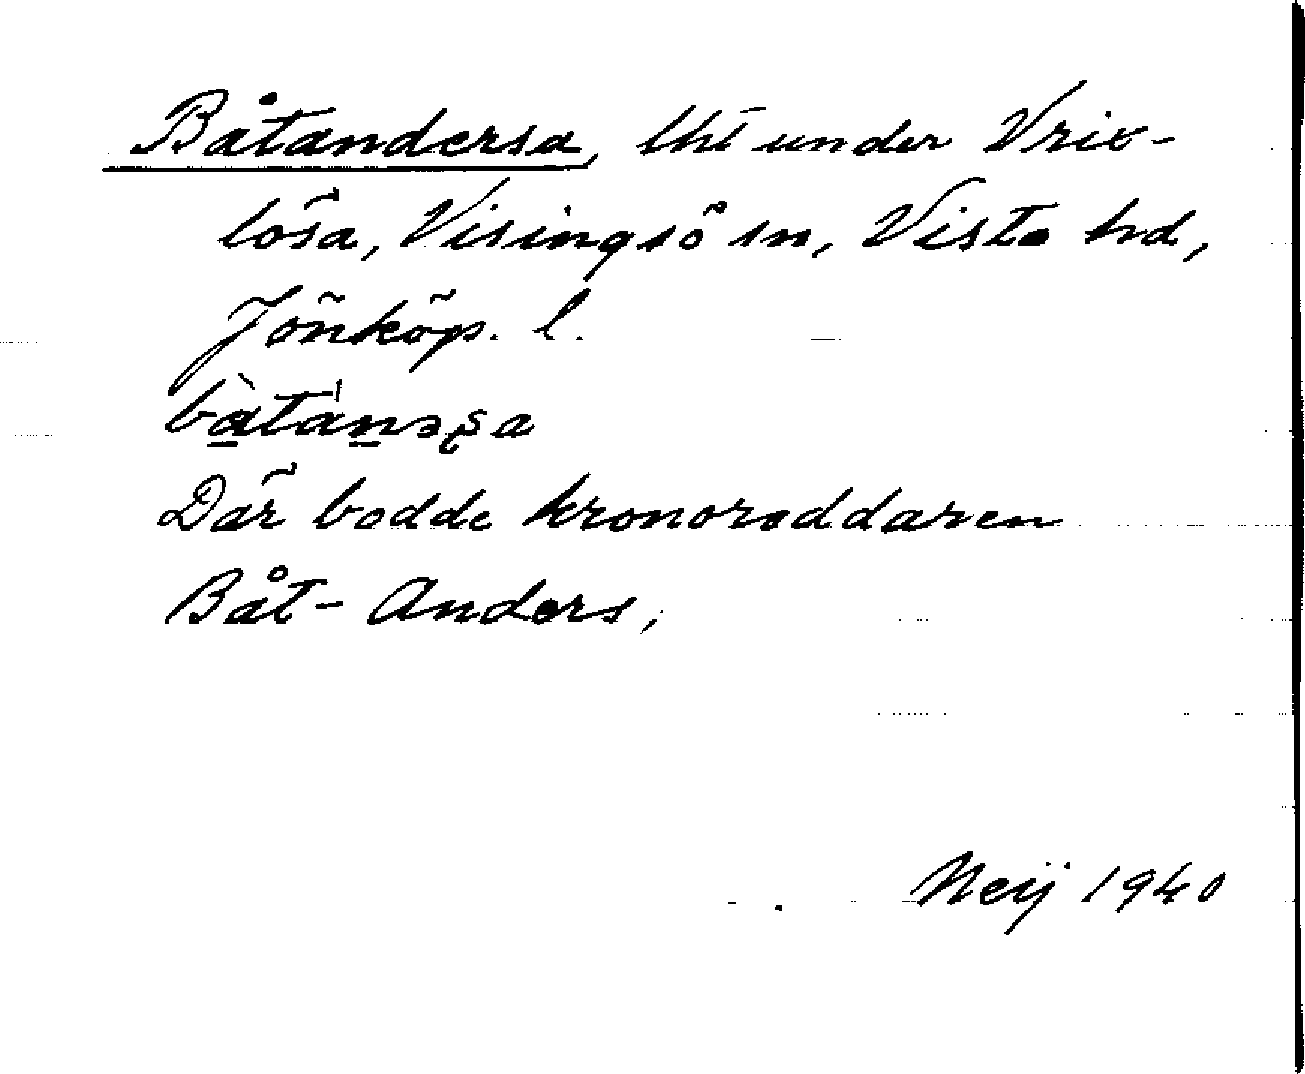 Båtandersa, lht under Vrix-
lösa, Visingsö sn, Vista hd,
Jönköp. l.
bàtánəʂa
Där bodde kronoroddaren
Båt-Anders,
Neij 1940